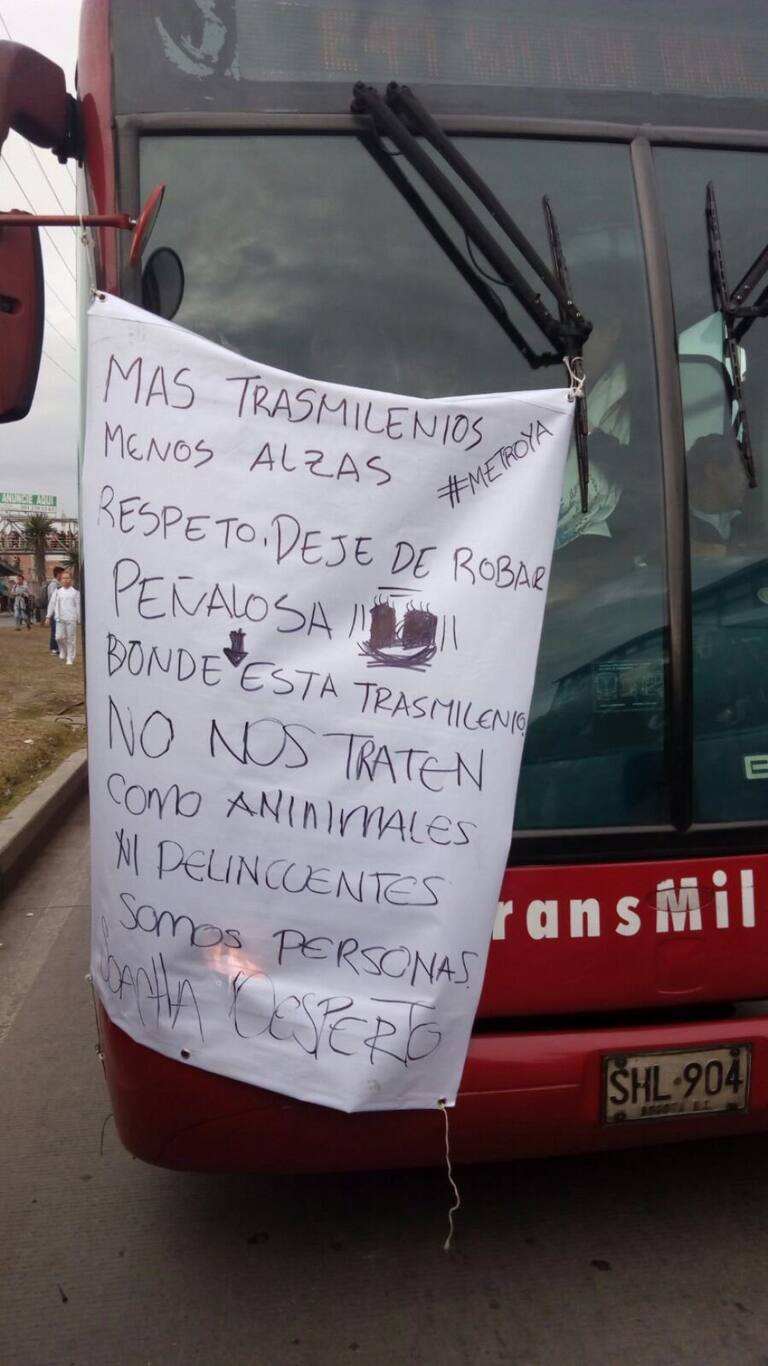 MAS TRASMILENIOS
MENOS ALZAS
#METROYA
RESPETO. DEJE DE ROBAR
PEÑALOSA
DONDE ESTA TRASMILENIO
NO NOS TRATEN
COMO ANINIMALES
NI DELINCUENTES
SOMOS PERSONAS.
SOACHA DESPERTO
ransMil
SHL 904
BOGOTA D.C.
ANUNCIE AQUI